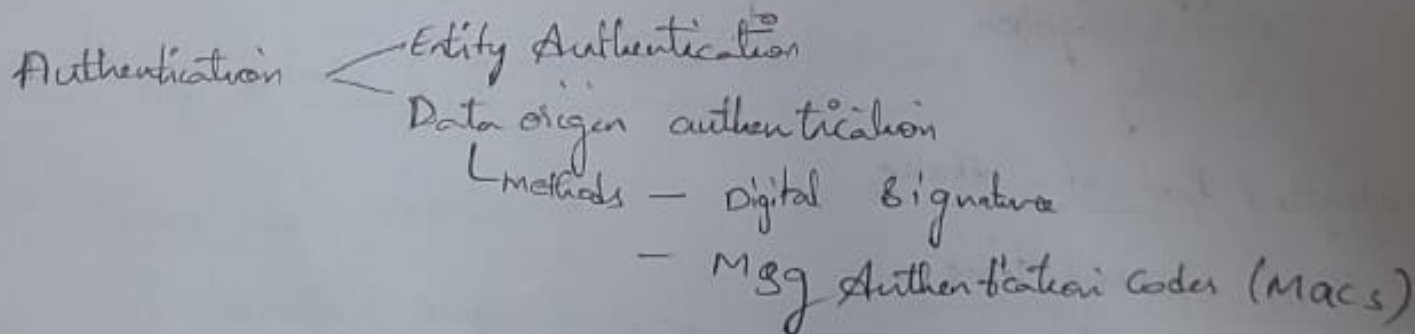 Authentication
Entity Authentication
Data origin authentication
methods - Digital Signature
- Msg Authentication Codes (Macs)